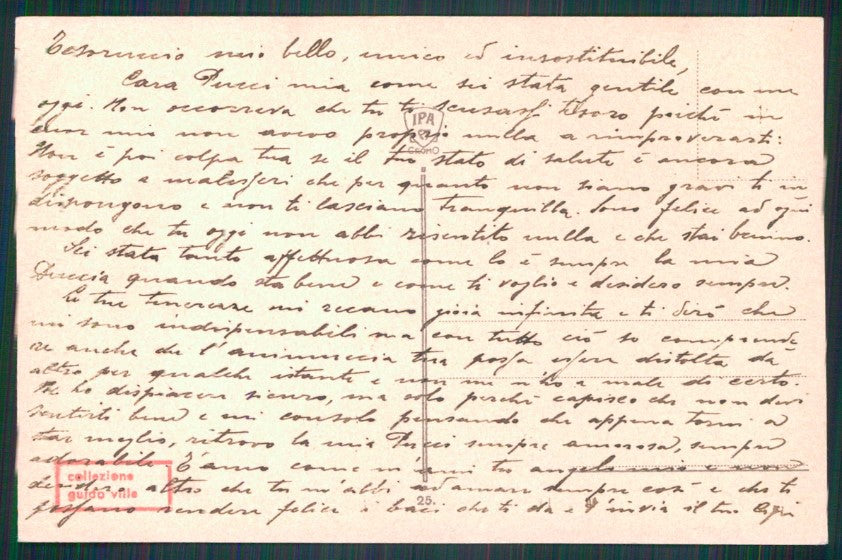 Tesoruccio mio bello, unico ed insostituibile,
Cara Pucci mia come sei stata gentile con me
oggi. Non occorreva che tu ti scusassi tesoro poiché in
cuor mio non avevo proprio nulla a rimproverarti:
Non è poi colpa tua se il tuo stato di salute è ancora
soggetto a malesseri che per quanto non siano gravi ti in
dispongono e non ti lasciano tranquilla. Sono felice ad ogni
modo che tu oggi non abbi risentito nulla e che stai benino.
Sei stata tanto affettuosa come lo è sempre la mia
quando sta bene e come ti voglio e desidero sempre.
Le tue tenerezze mi recano gioia infinita e ti dirò che
mi sono indispensabili ma con tutto ciò so comprende
re anche che l'animuccia tua possa essere distolta da
altro per qualche istante e non me n'ho a male di certo.
Ne ho dispiacere sicuro, ma solo perché capisco che non devi
sentirti bene e mi consolo pensando che appena torni a
star meglio, ritrovo la mia Pucci sempre amorosa, sempre
adorabile. T'amo come m'ami tu angelo mio e non
desidero altro che tu m'abbi ad amare sempre così e che ti
possano rendere felice i baci che ti dà e t'invia il tuo
IPA
CROMO
25.
collezione
guido vitle